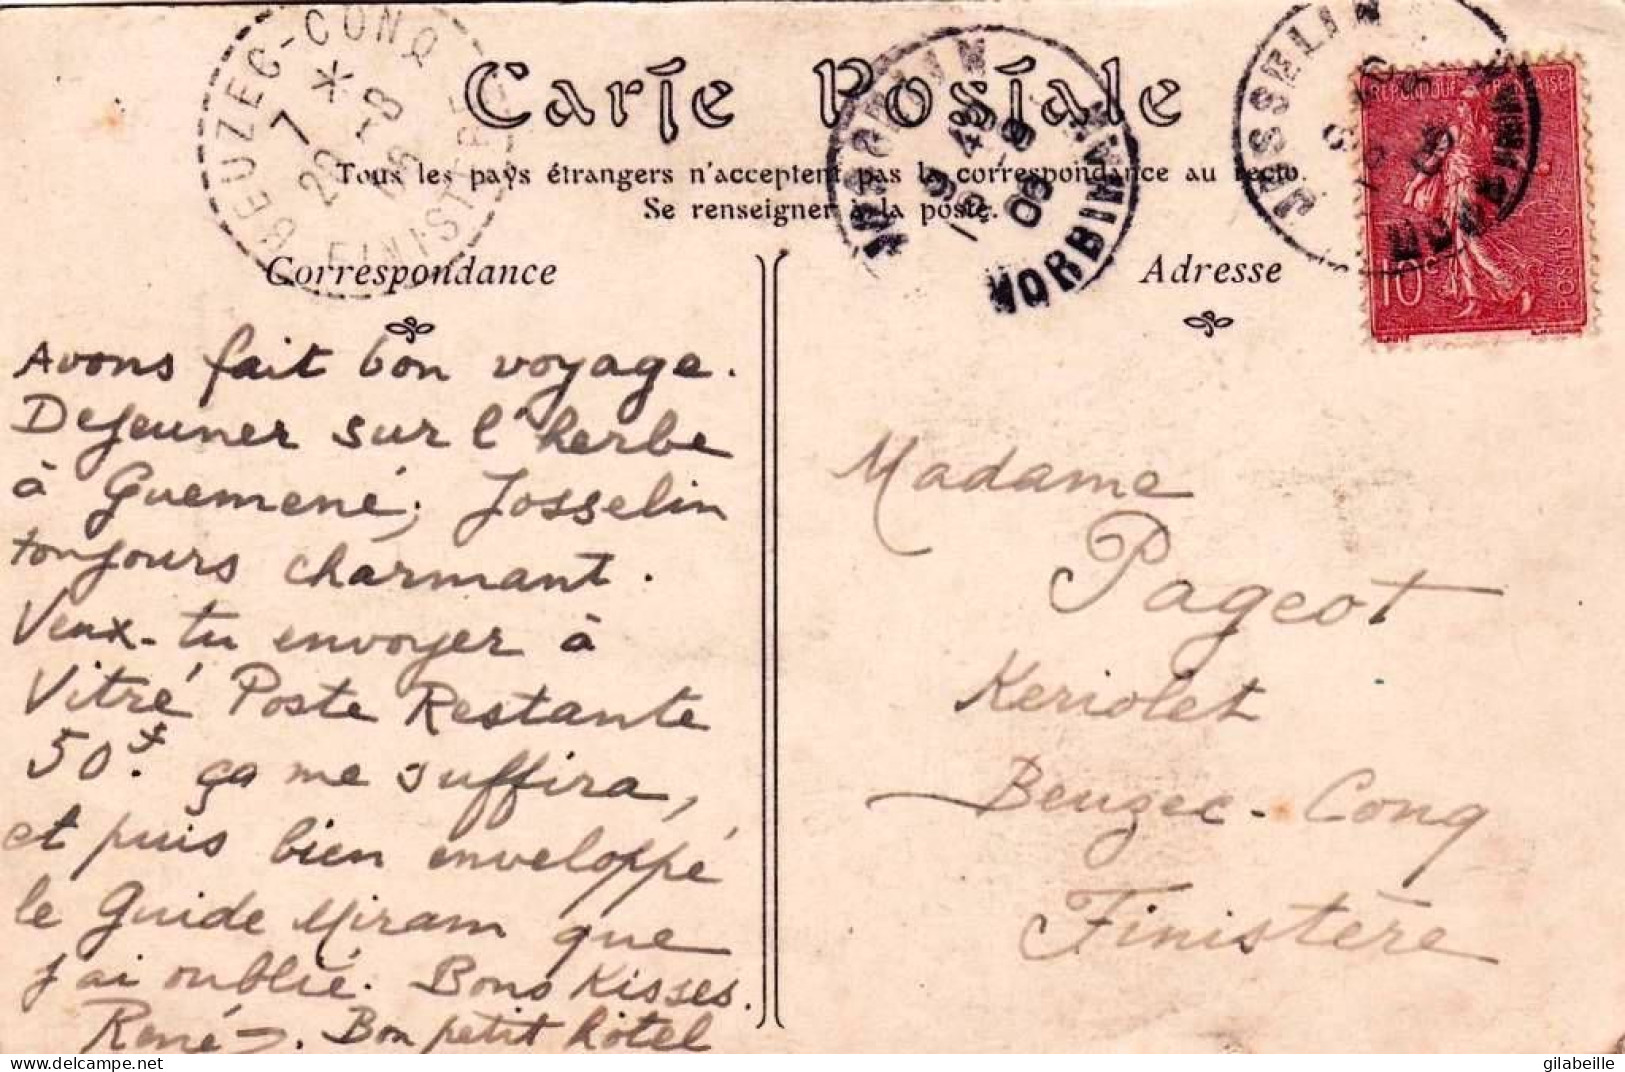 Carte Postale
Tous les pays étrangers n'acceptent pas la correspondance au recto.
Se renseigner à la poste.
BEUZEC-CONQ
7 *
FINISTERE
MORBIHAN
JOSSELIN
MORBIHAN
REPUBLIQUE FRANÇAISE
10
POSTES
Correspondance
Avons fait bon voyage.
Dejeuner sur l'herbe
à Guemené, Josselin
toujours charmant.
Veux-tu envoyer à
Vitré Poste Restante
50f. ça me suffira,
et puis bien enveloppé
le Guide Miram que
j'ai oublié. Bons Kisses.
René. Bon petit hôtel
Adresse
Madame
Pageot
Keriolet
Beuzec-Conq
Finistère
gilabeille